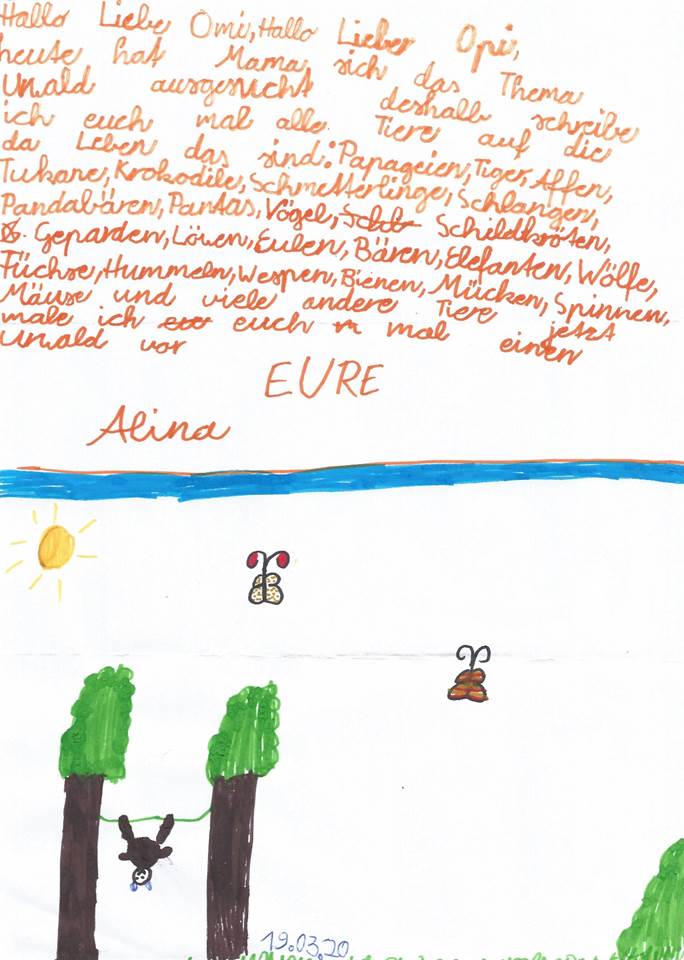 Hallo Liebe Omi, Hallo Lieber Opi,
heute hat Mama sich das Thema
Urwald ausgesucht deshalb schreibe
ich euch mal alle Tiere auf die
da Leben das sind: Papageien, Tiger, Affen,
Tukane, Krokodile, Schmetterlinge, Schlangen,
Pandabären, Pantas, Vögel, Schildkröten,
Geparden, Löwen, Eulen, Bären, Elefanten, Wölfe,
Füchse, Hummeln, Wespen, Bienen, Mücken, Spinnen,
Mäuse und viele andere Tiere jetzt
male ich euch mal einen
Urwald vor
EURE
Alina
19.03.20